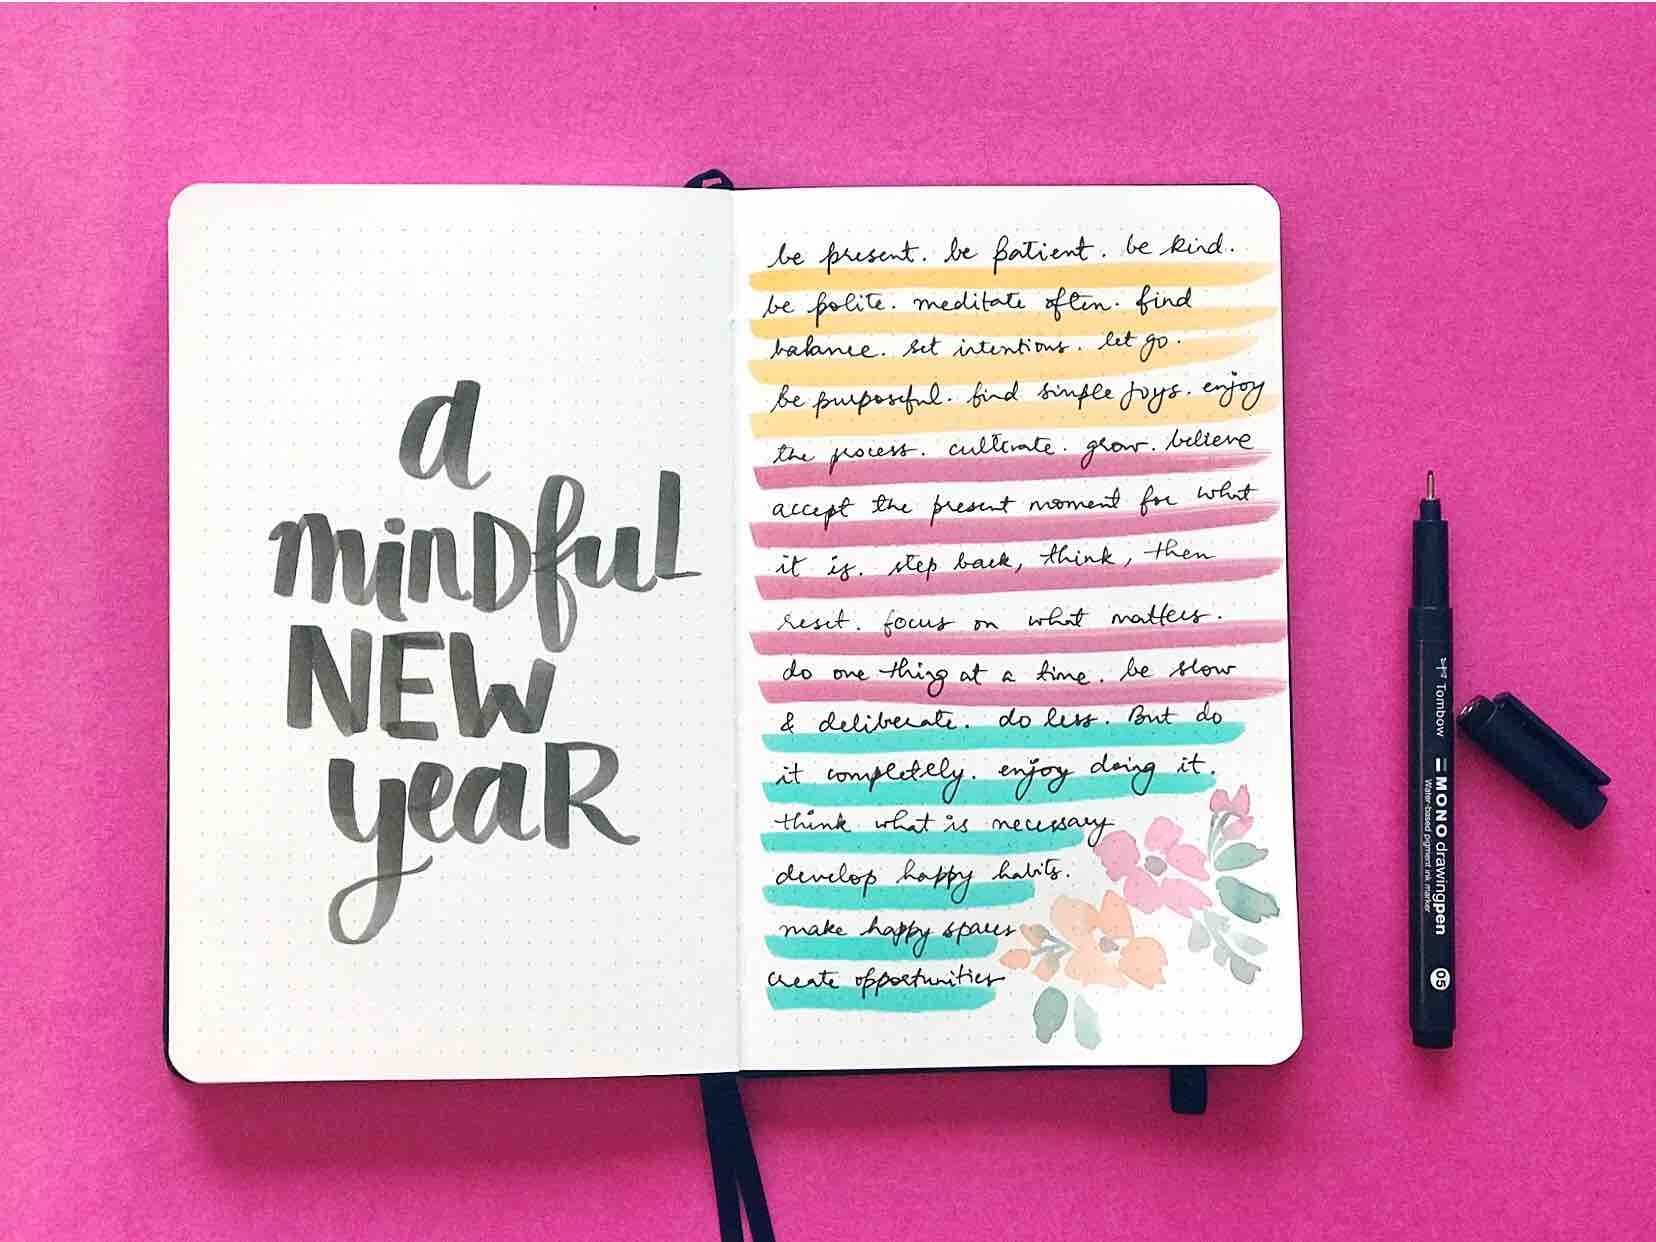 a
mindful
NEW
yeaR
be present. be patient. be kind.
be polite. meditate often. find
balance. set intentions. let go.
be purposeful. find simple joys. enjoy
the process. cultivate. grow. believe
accept the present moment for what
it is. step back, think, then
reset. focus on what matters.
do one thing at a time. be slow
& deliberate. do less. But do
it completely. enjoy doing it.
think what is necessary
develop happy habits.
make happy spaces
create opportunities
Tombow MONO drawingpen 05
Water-based pigment ink marker